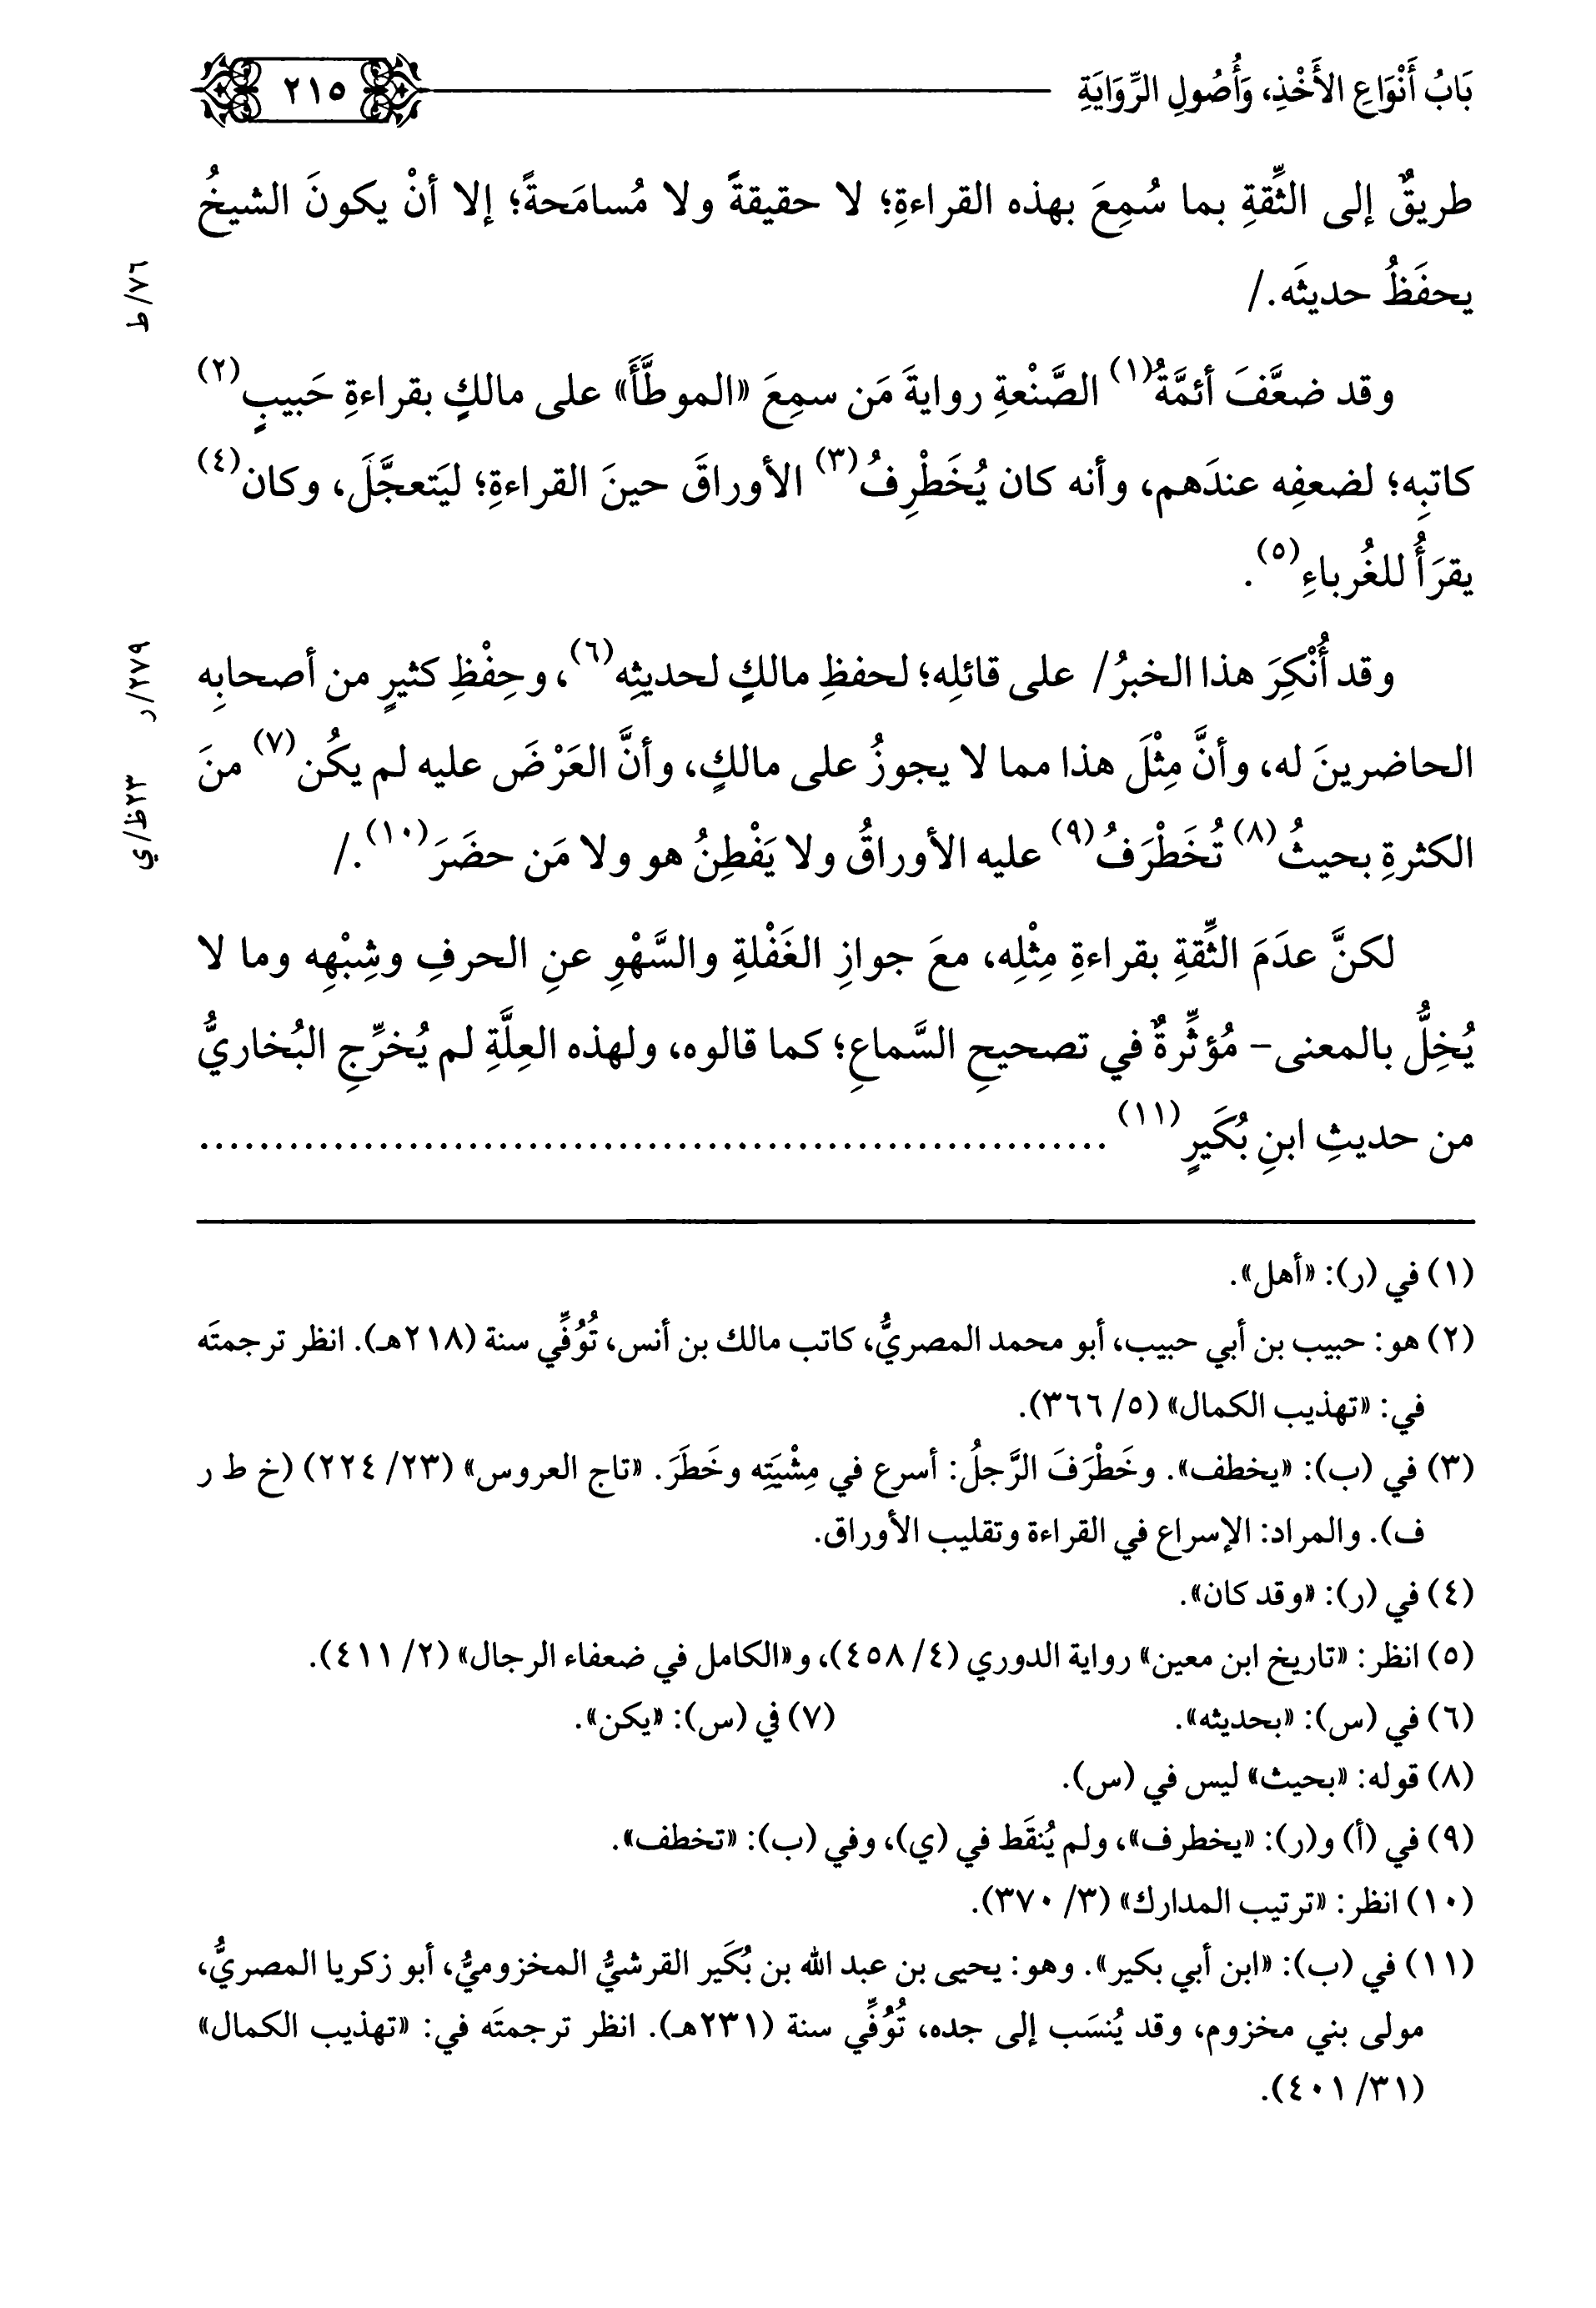 بَابُ أَنْوَاعِ الأَخْذِ، وَأُصُولِ الرِّوَايَةِ
٢١٥
طريقٌ إلى الثِّقةِ بما سُمِعَ بهذه القراءةِ؛ لا حقيقةً ولا مُسامَحةً؛ إلا أنْ يكونَ الشيخُ
يحفَظُ حديثَه./
٧٦/ ط
وقد ضعَّفَ أئمَّةُ(١) الصَّنْعةِ روايةَ مَن سمِعَ «الموطَّأَ» على مالكٍ بقراءةِ حَبيبٍ(٢)
كاتبِه؛ لضعفِه عندَهم، وأنه كان يُخَطْرِفُ(٣) الأوراقَ حينَ القراءةِ؛ ليَتعجَّلَ، وكان(٤)
يقرَأُ للغُرباءِ(٥).
وقد أُنْكِرَ هذا الخبرُ/ على قائلِه؛ لحفظِ مالكٍ لحديثِه(٦)، وحِفْظِ كثيرٍ من أصحابِه
٢٧٩/ ر
الحاضرينَ له، وأنَّ مِثْلَ هذا مما لا يجوزُ على مالكٍ، وأنَّ العَرْضَ عليه لم يكُن(٧) منَ
الكثرةِ بحيثُ(٨) تُخَطْرَفُ(٩) عليه الأوراقُ ولا يَفْطِنُ هو ولا مَن حضَرَ(١٠)./
٢٣ظ/ ي
لكنَّ عدَمَ الثِّقةِ بقراءةِ مِثْلِه، معَ جوازِ الغَفْلةِ والسَّهْوِ عنِ الحرفِ وشِبْهِه وما لا
يُخِلُّ بالمعنى- مُؤثِّرةٌ في تصحيحِ السَّماعِ؛ كما قالوه، ولهذه العِلَّةِ لم يُخرِّجِ البُخاريُّ
من حديثِ ابنِ بُكَيرٍ(١١) ..............................................................
(١) في (ر): «أهل».
(٢) هو: حبيب بن أبي حبيب، أبو محمد المصريُّ، كاتب مالك بن أنس، تُوُفِّي سنة (٢١٨هـ). انظر ترجمتَه
في: «تهذيب الكمال» (٥/ ٣٦٦).
(٣) في (ب): «يخطف». وخَطْرَفَ الرَّجلُ: أسرع في مِشْيَتِه وخَطَرَ. «تاج العروس» (٢٣/ ٢٢٤) (خ ط ر
ف). والمراد: الإسراع في القراءة وتقليب الأوراق.
(٤) في (ر): «وقد كان».
(٥) انظر: «تاريخ ابن معين» رواية الدوري (٤/ ٤٥٨)، و«الكامل في ضعفاء الرجال» (٢/ ٤١١).
(٦) في (س): «بحديثه». (٧) في (س): «يكن».
(٨) قوله: «بحيث» ليس في (س).
(٩) في (أ) و(ر): «يخطرف»، ولم يُنقَط في (ي)، وفي (ب): «تخطف».
(١٠) انظر: «ترتيب المدارك» (٣/ ٣٧٠).
(١١) في (ب): «ابن أبي بكير». وهو: يحيى بن عبد الله بن بُكَير القرشيُّ المخزوميُّ، أبو زكريا المصريُّ،
مولى بني مخزوم، وقد يُنسَب إلى جده، تُوُفِّي سنة (٢٣١هـ). انظر ترجمتَه في: «تهذيب الكمال»
(٣١/ ٤٠١).